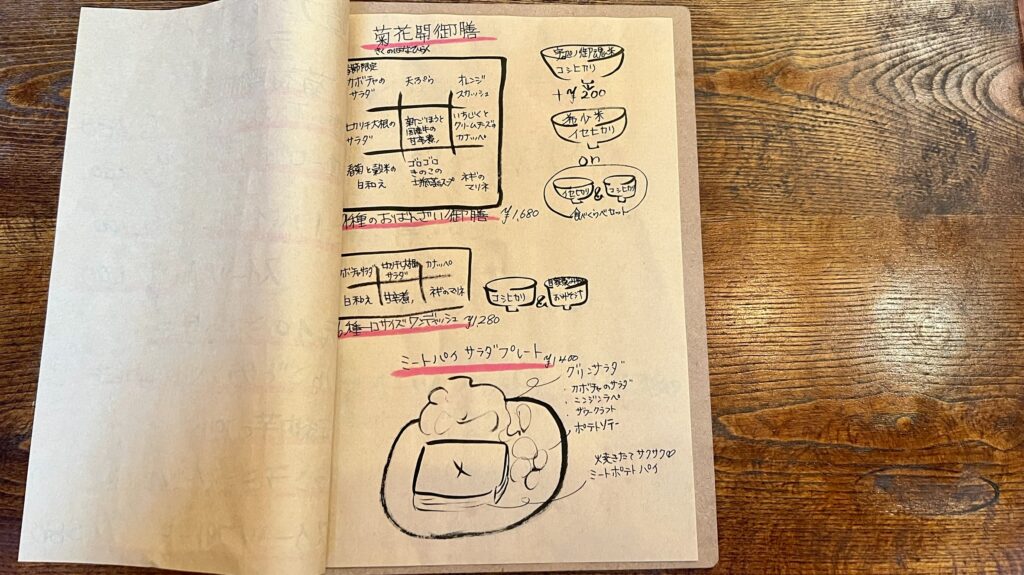 菊花開御膳
きくのはなひらく
節限定
カボチャの
サラダ
天ぷら
オレンジ
スカッシュ
切り干大根の
サラダ
新ごぼうと
国産牛の
甘辛煮
いちじくと
クリームチーズの
カナッペ
春菊と穀米の
白和え
ゴロゴロ
きのこの
ネギの
マリネ
種のおばんざい御膳 ¥1,680
コシヒカリ
+¥200
希少米
イセヒカリ
or
イセヒカリ & コシヒカリ
食べくらべセット
カボチャサラダ
切り干大根
サラダ
カナッペ
白和え
甘辛煮
ネギのマリネ
コシヒカリ & おみそ汁
6種一口サイズワンディッシュ ¥1,280
ミートパイ サラダプレート ¥1,400
グリーンサラダ
・カボチャのサラダ
・ニンジンラペ
・ザワークラフト
ポテトソテー
焼きたてサクサク♡
ミートポテトパイ